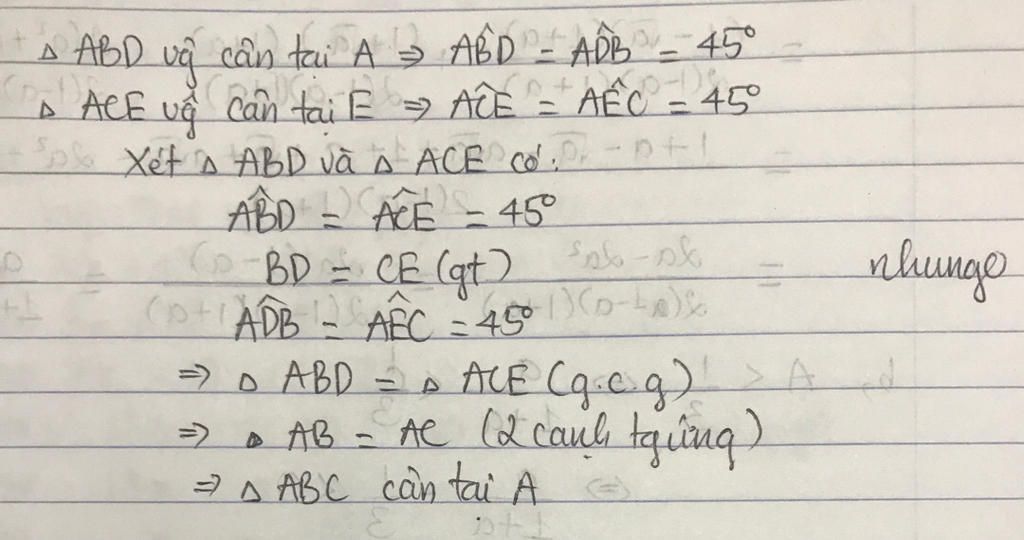 △ ABD vg̃ cân tại A ⇒ AB̂D = AD̂B = 45°
△ ACE vg̃ cân tại E ⇒ AĈE = AÊC = 45°
Xét △ ABD và △ ACE có:
AB̂D = AĈE = 45°
BD = CE (gt)
nhungo
AD̂B = AÊC = 45°
⇒ △ ABD = △ ACE (g.c.g)
⇒ △ AB = AC (2 cạnh tg ứng)
⇒ △ ABC cân tại A